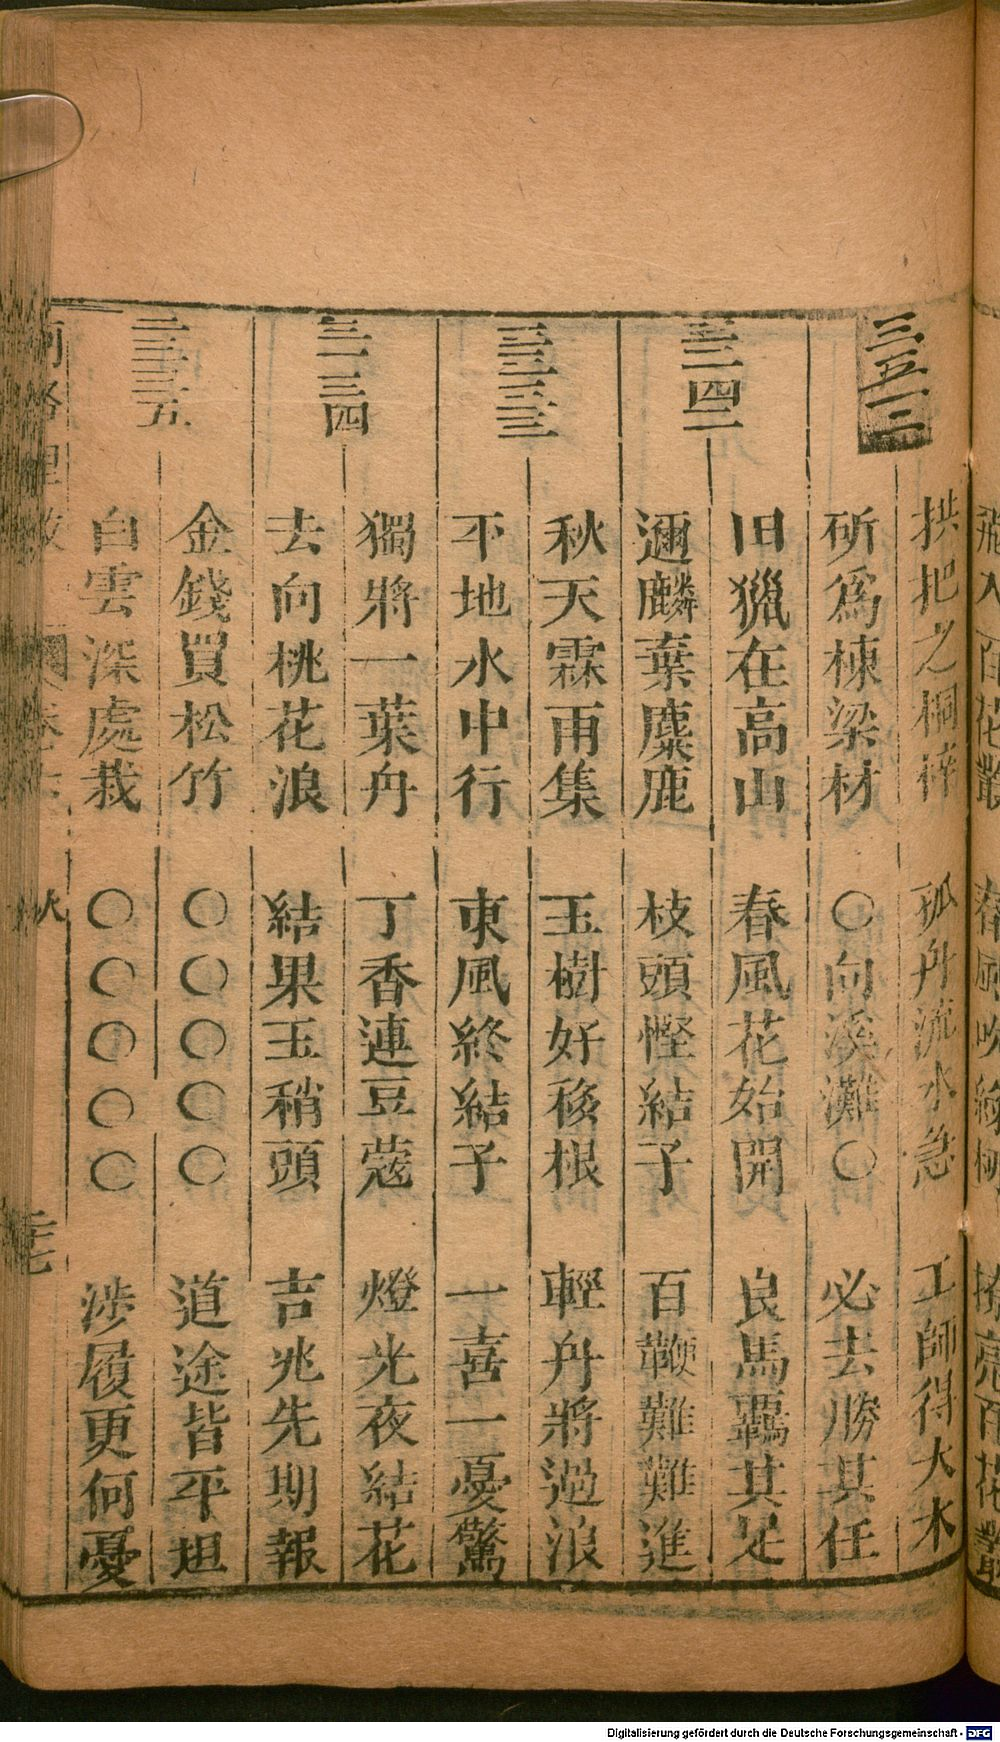 三五一二
拱把之桐梓 孤舟流水急 工師得大木
斫爲棟梁材 ○向溪灘○ 必去勝其任
三二四二
旧獵在高山 春風花始開 良馬羈其足
邇麟棄麋鹿 枝頭慳結子 百鞭難難進
三二三三
秋天霖雨集 玉樹好移根 輕舟將過浪
不地水中行 東風終結子 一喜一憂驚
三一三四
獨將一葉舟 丁香連豆蔻 燈光夜結花
去向桃花浪 結果玉稍頭 吉兆先期報
金錢買松竹 ○○○○○ 道途皆平坦
白雲深處栽 ○○○○○ 涉履更何憂
Digitalisierung gefördert durch die Deutsche Forschungsgemeinschaft - DFG